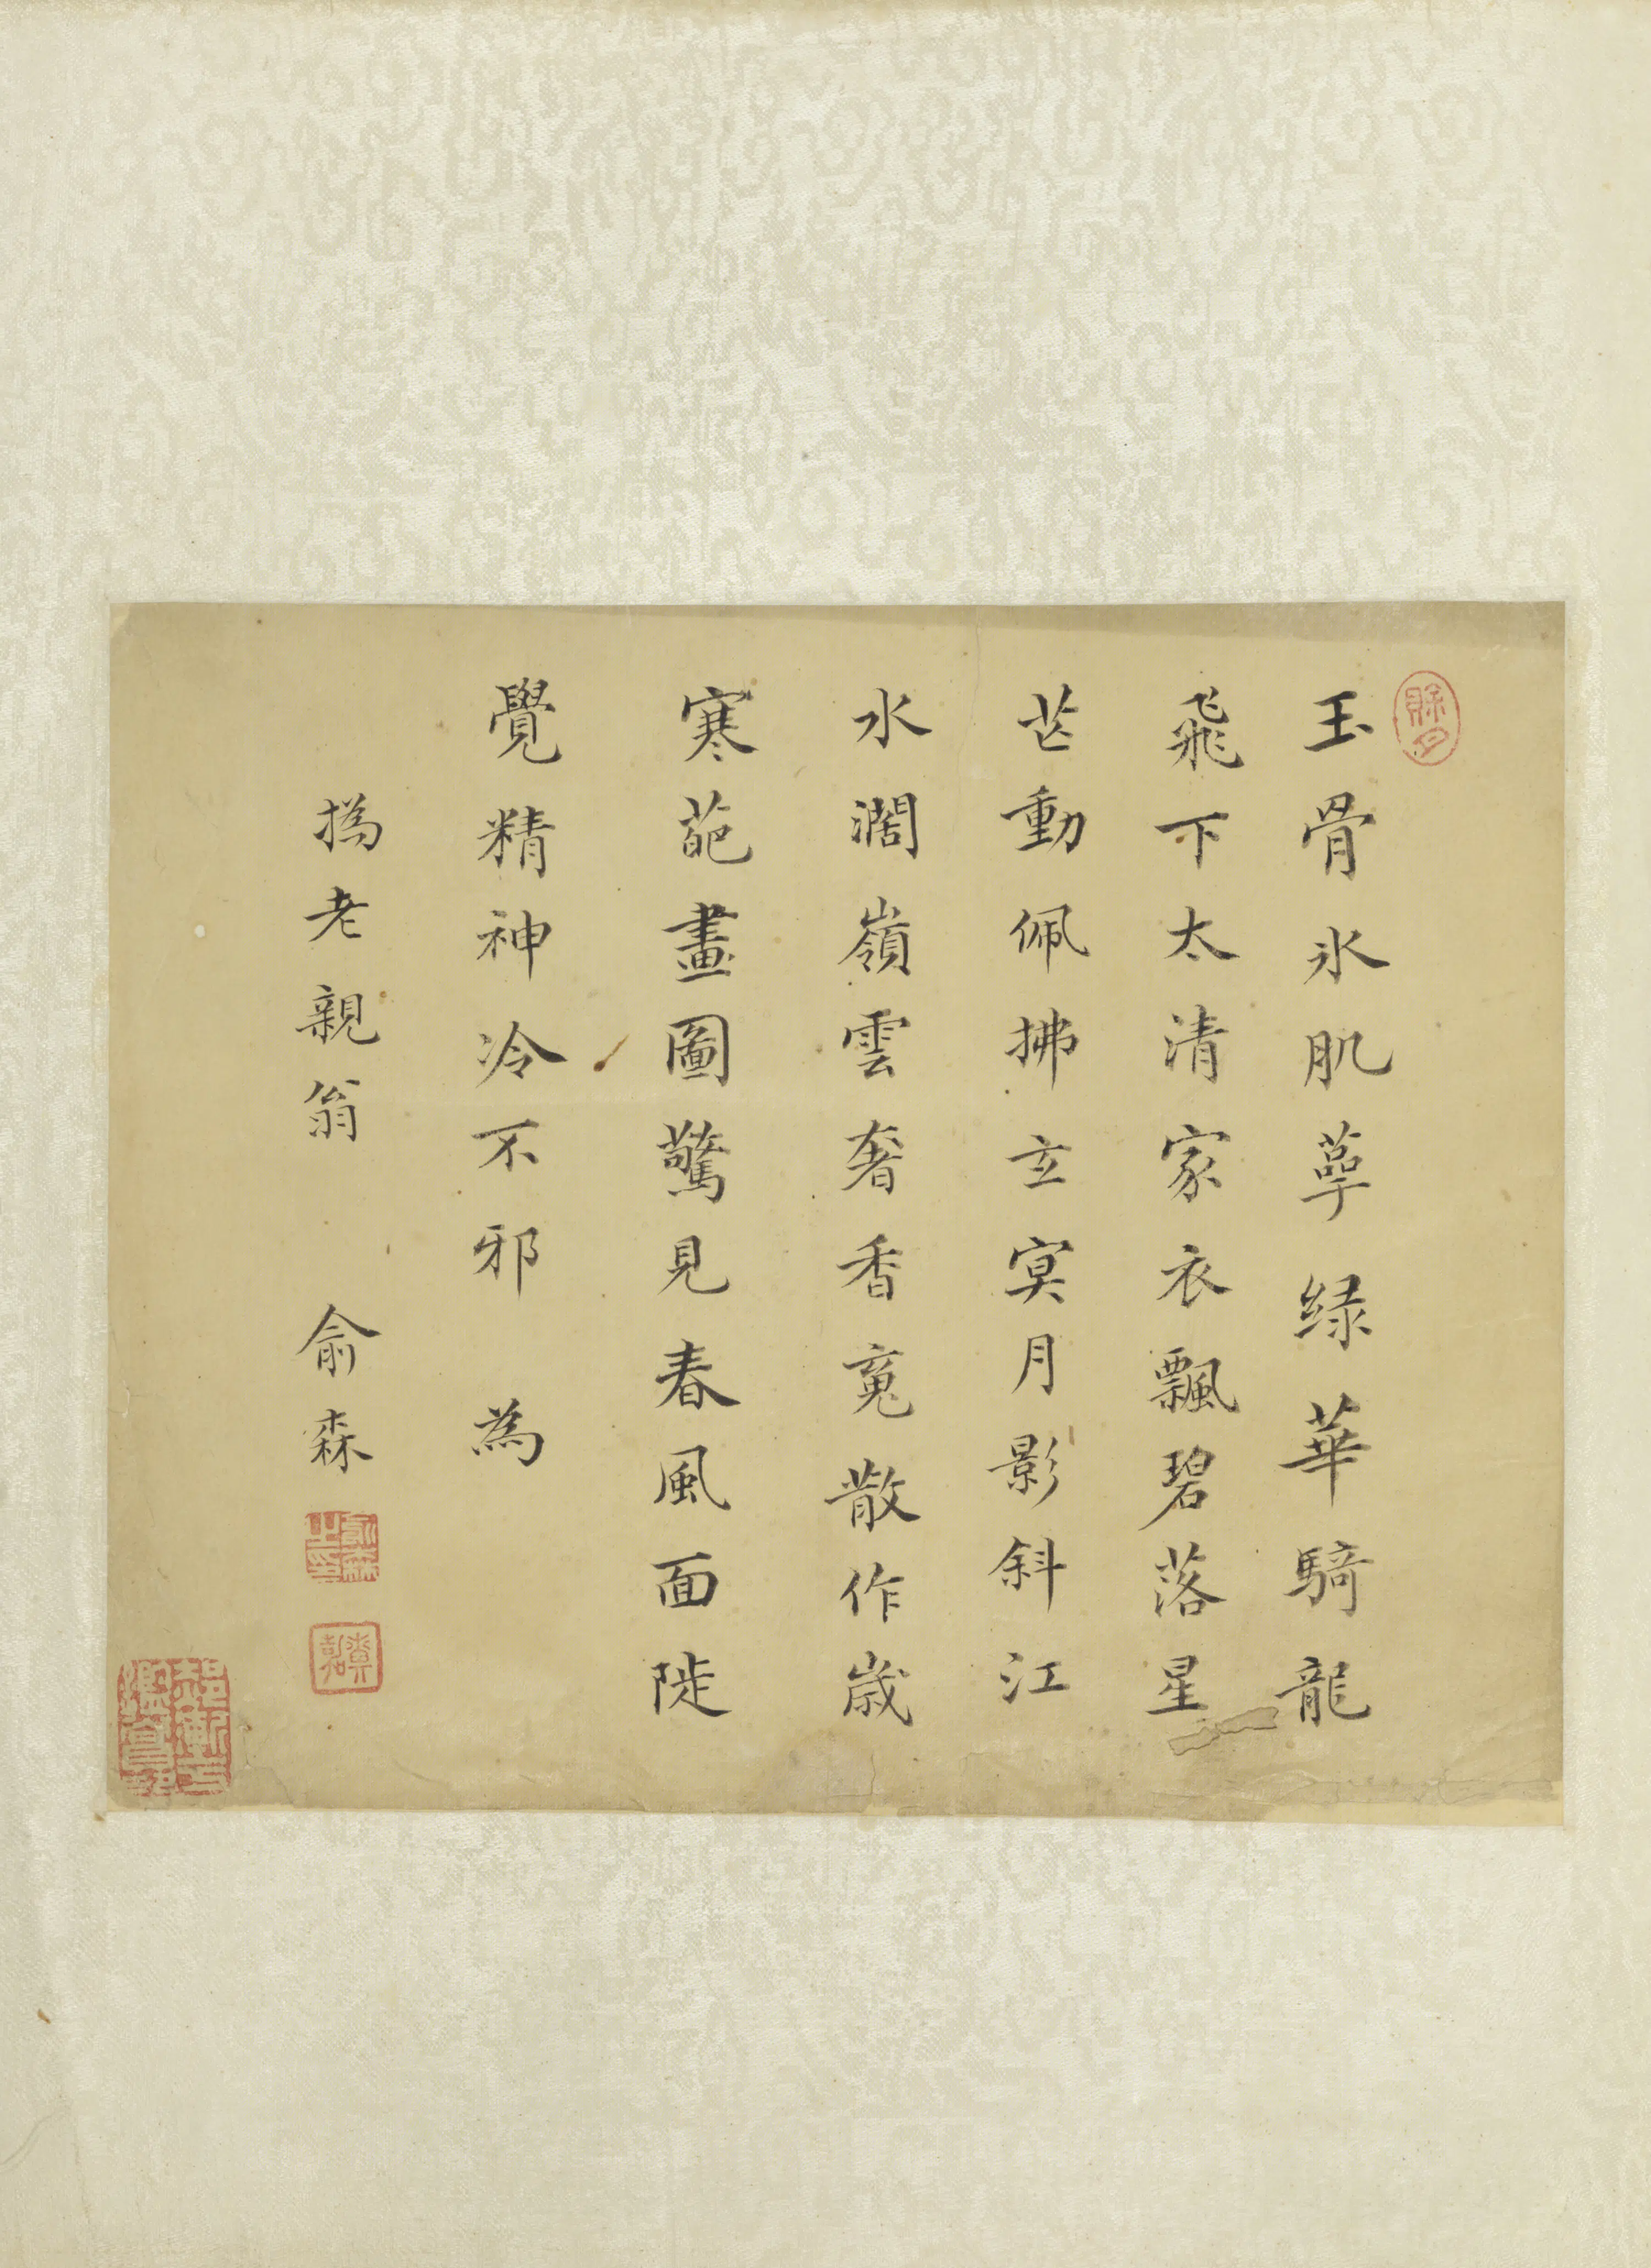 玉骨氷肌萼緑華騎龍
飛下太清家衣飄碧落星
芒動佩拂玄冥月影斜江
水濶嶺雲奢香䰟散作歲
寒葩畫圖驚見春風面陡
覺精神冷不邪 為
撝老親翁 俞森
俞森之印